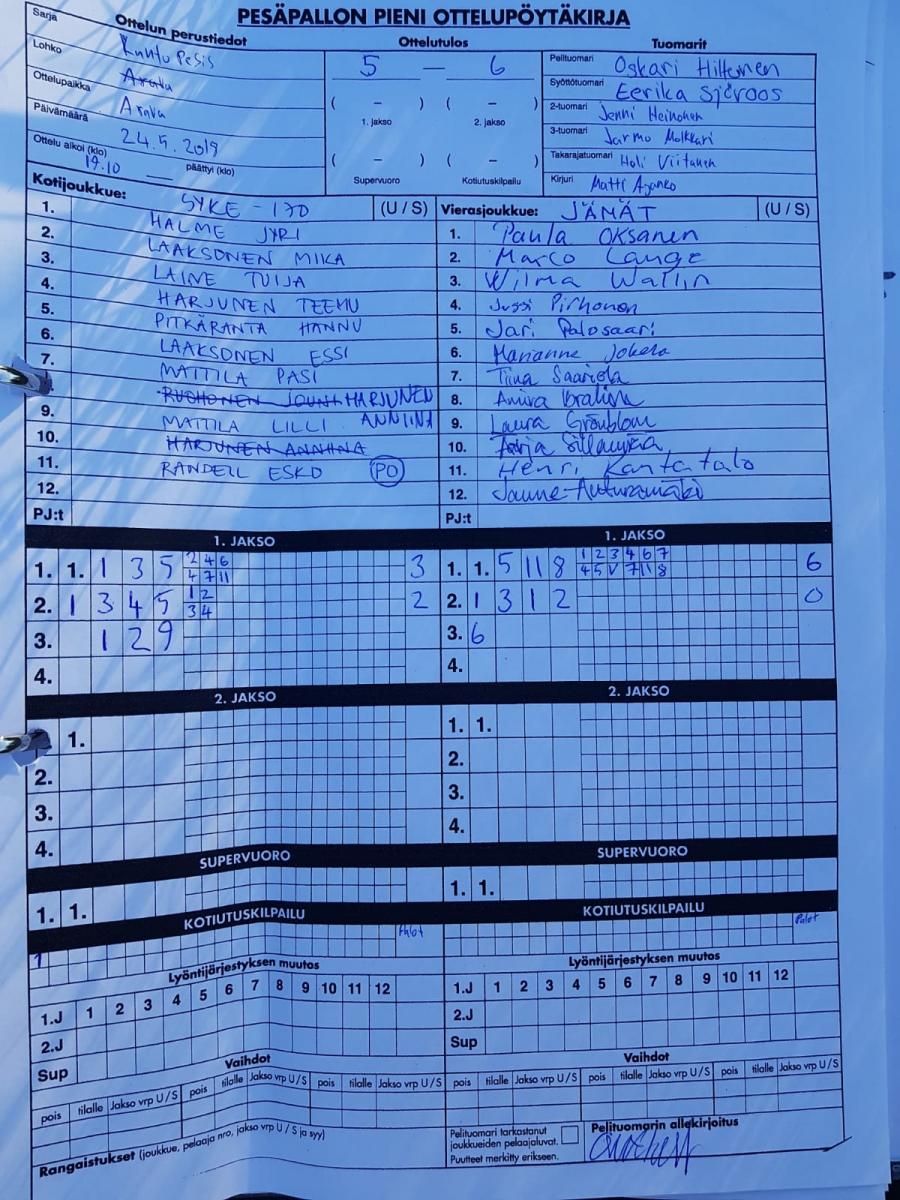 PESÄPALLON PIENI OTTELUPÖYTÄKIRJA
Ottelun perustiedot
Ottelutulos
Tuomarit
Sarja Kuntopesis
Lohko
Ottelupaikka
Päivämäärä 24.5.2019
Ottelu alkoi (klo) 19.10 päättyi (klo)
5 — 6
( – ) ( – )
1. jakso 2. jakso
( – ) ( – )
Supervuoro Kotiutuskilpailu
Pelituomari Oskari Hiltunen
Syöttötuomari Eerika Sjöroos
2-tuomari Jenni Heinonen
3-tuomari Jarmo Molkkari
Takarajatuomari Holi Viitanen
Kirjuri Matti
Kotijoukkue: SYKE-170 (U / S)
1. HALME JYRI
2. LAAKSONEN MIKA
3. LAINE TUIJA
4. HARJUNEN TEEMU
5. PITKÄRANTA HANNU
6. LAAKSONEN ESSI
7. MATTILA PASI
RUOHONEN JOUNI HARJUNEN ANNIINA
9. MATTILA LILLI
10. HARJUNEN ANNIINA
11. RANDELL ESKO PO
12.
PJ:t
Vierasjoukkue: JÄMÄT (U / S)
1. Paula Oksanen
2. Marco Lange
3. Wilma Wallin
4. Jussi Pirhonen
5. Jari Palosaari
6. Marianne Jokela
7. Tiina Saariola
8.
9. Laura Grönblom
10.
11. Henri Kantatalo
12. Janne
PJ:t
1. JAKSO
1. 1. 1 3 5 2 4 6 3
4 7 11
2. 1 3 4 5 1 2 2
3 4
3. 1 2 9
4.
1. JAKSO
1. 1. 5 11 8 1 2 3 4 6 7 6
4 5 V 7 11 8
2. 1 3 12 0
3. 6
4.
2. JAKSO
1. 1.
2.
3.
4.
2. JAKSO
1. 1.
2.
3.
4.
SUPERVUORO
1. 1.
SUPERVUORO
1. 1.
KOTIUTUSKILPAILU
Palot
KOTIUTUSKILPAILU
Palot
Lyöntijärjestyksen muutos
1.J 1 2 3 4 5 6 7 8 9 10 11 12
2.J
Sup
Lyöntijärjestyksen muutos
1.J 1 2 3 4 5 6 7 8 9 10 11 12
2.J
Sup
Vaihdot
pois tilalle Jakso vrp U / S pois tilalle Jakso vrp U / S pois tilalle Jakso vrp U / S
Vaihdot
pois tilalle Jakso vrp U / S pois tilalle Jakso vrp U / S pois tilalle Jakso vrp U / S
Rangaistukset (joukkue, pelaaja nro, jakso vrp U / S ja syy)
Pelituomari tarkastanut
joukkueiden pelaajaluvat.
Puutteet merkitty erikseen.
Pelituomarin allekirjoitus